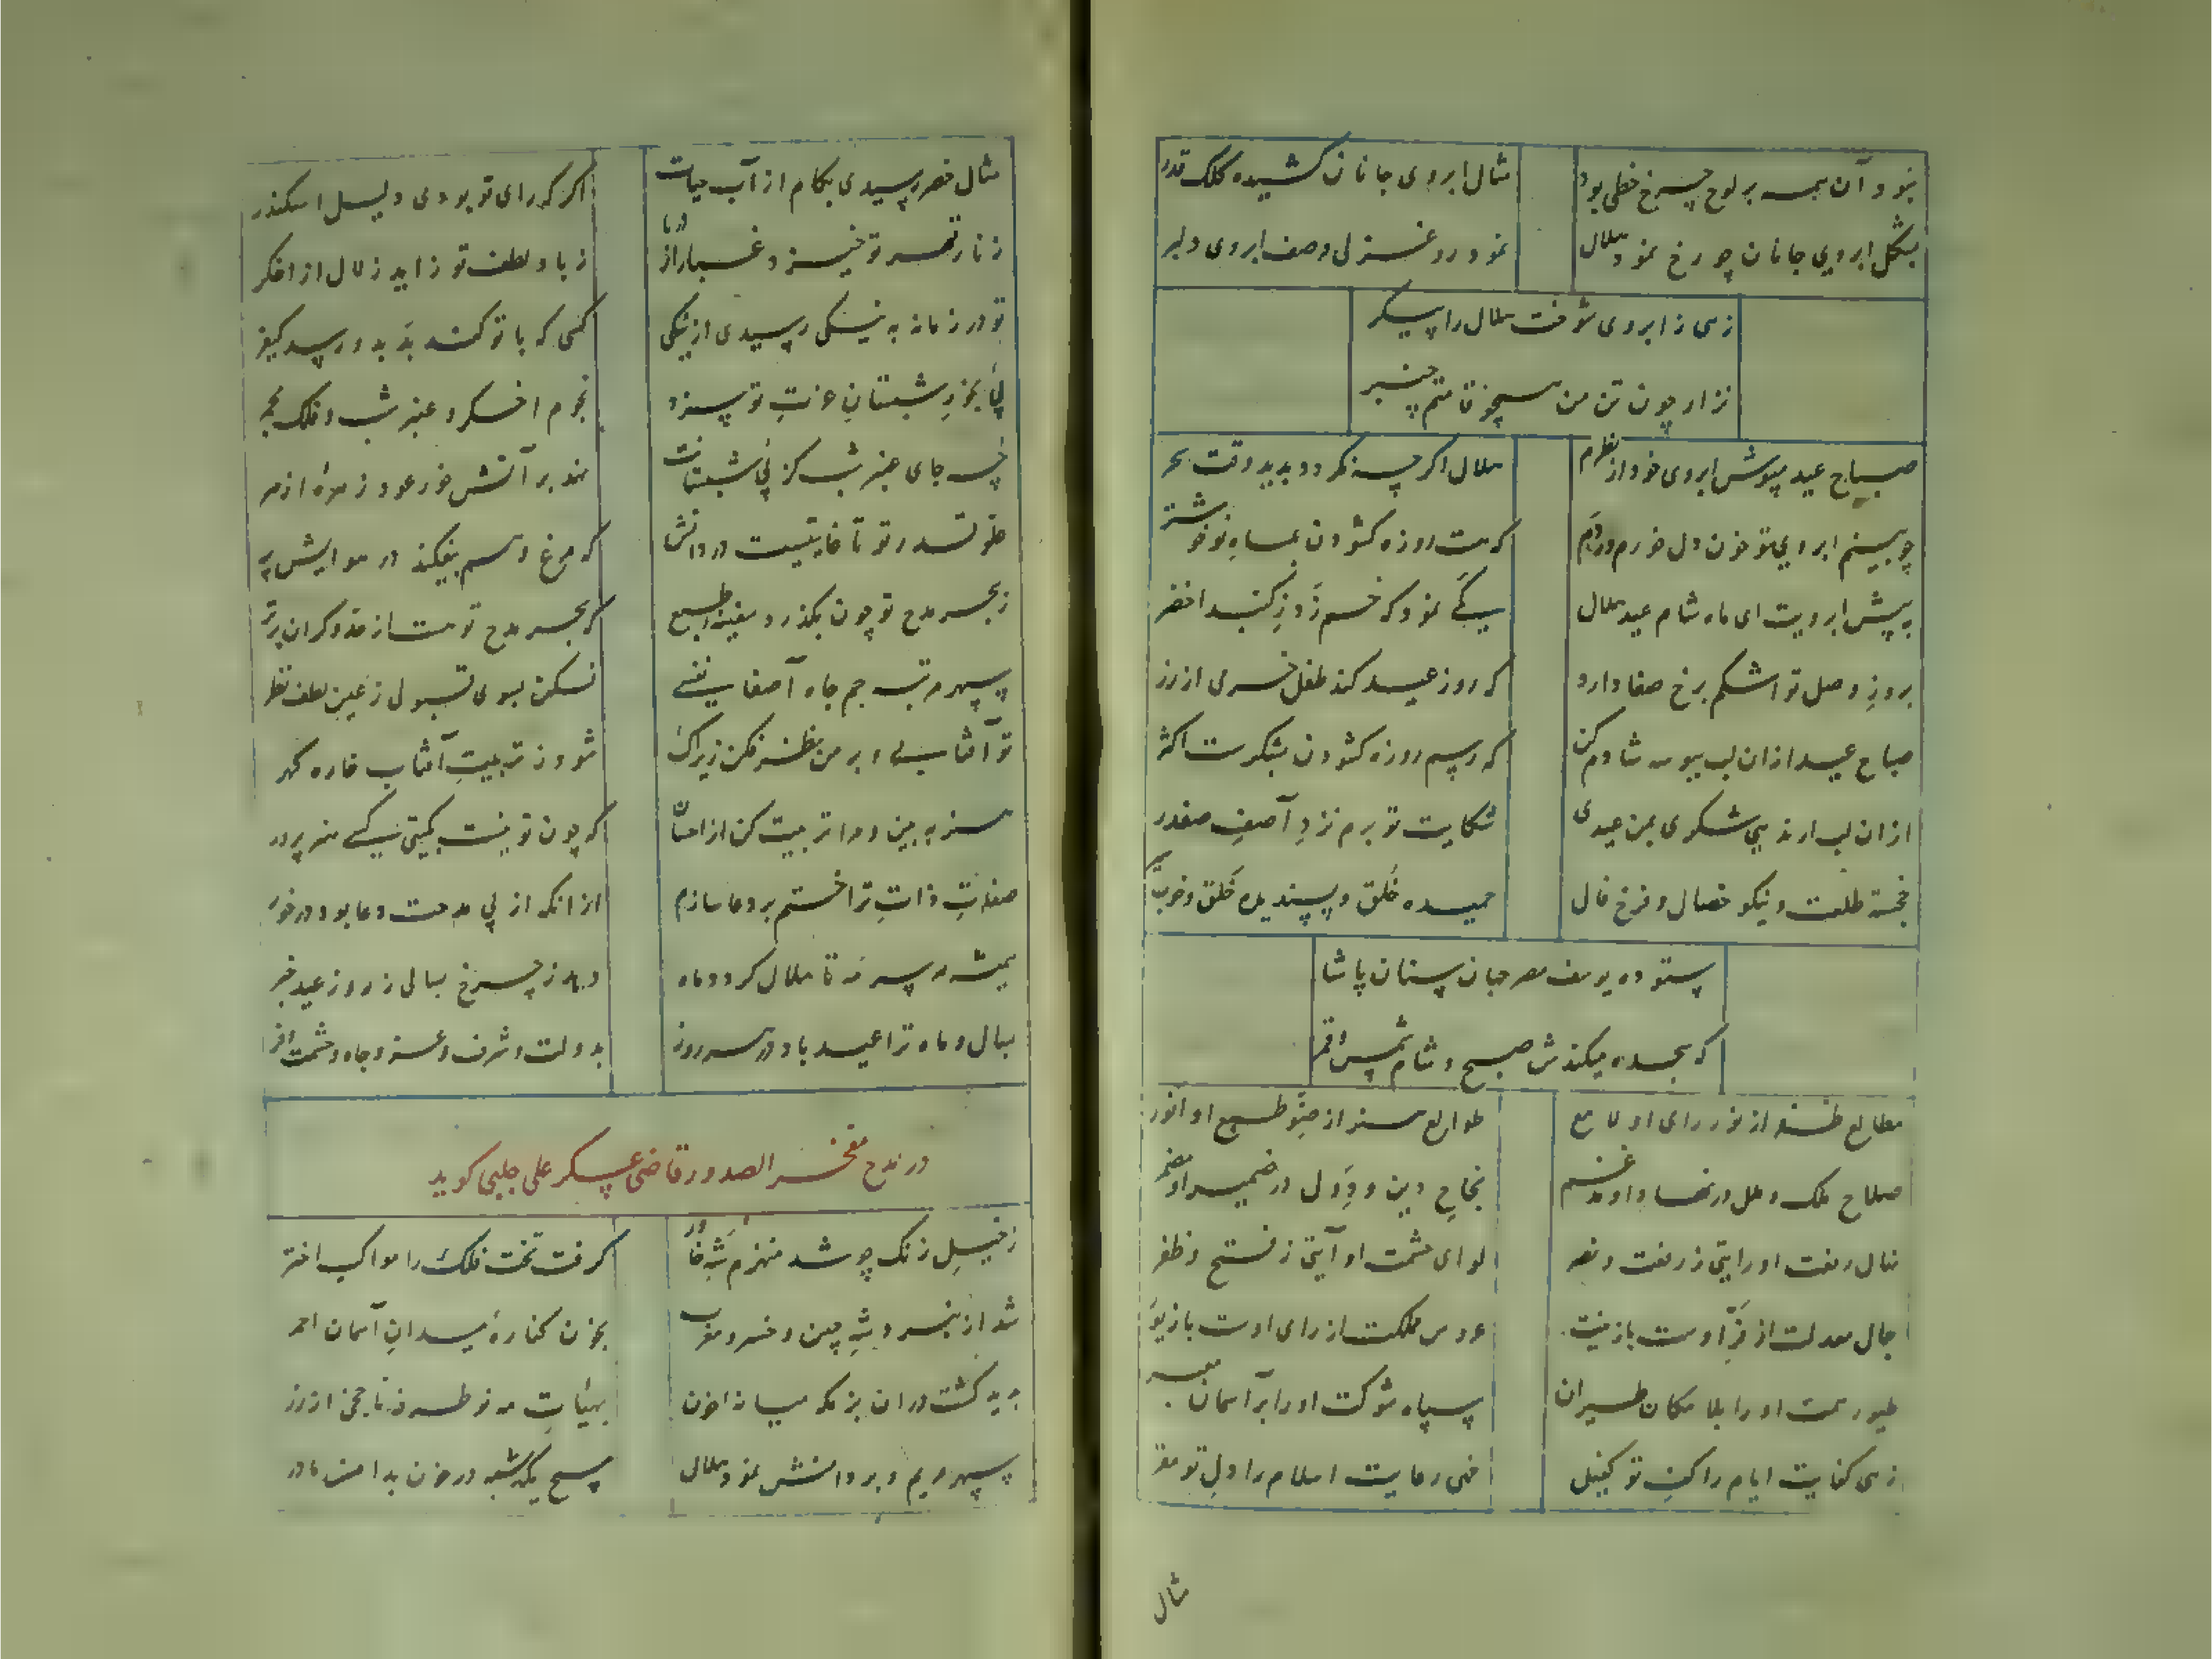 نبود آن همه بر لوح چرخ خطی بود
مثال ابروی جانان کشیده کلک قدر
بشکل ابروی جانان چو رخ نمود هلال
نمود رو غزلی وصف ابروی دلبر
زهی ز ابروی شوخت هلال را پیکر
نزار چون تن من همچو قامتم چنبر
صباح عید مپوش ابروی خود از نظرم
هلال اگر چه نکردد پدید وقت سحر
چو بینم ابروی تو خون دل خورم هر دم
که هست روزه کشودن بماه نو خوشتر
به پیش ابرویت ای ماه شام عید هلال
یکی نمود که خم زد وز کنبد اخضر
بروز وصل تو اشکم برخ صفا دارد
که روز عید کند طفل خرمی از زر
صباح عید از ان لب ببوسه شادم کن
که رسم روزه کشودن بشکرست اکثر
از ان لب ار ندهی شکری بمن عیدی
شکایت تو برم نزد آصف صفدر
خجسته طلعت و نیکو خصال و فرخ فال
حمیده خلق و پسندیده خلق و خوب
ستوده یوسف مصر جهان سنان پاشا
که سجده میکندش صبح و شام شمس و قمر
مطالع ظفر از نور رای او لامع
طوالع هنر از ضو طبع او انور
صلاح ملک و ملل در نهاد او مدغم
نجاح دین و دول در ضمیر او مضمر
نهال رفعت او رایتی ز رفعت و نصر
لوای حشمت او آیتی ز فتح و ظفر
جمال معدلت از فر اوست با زینت
عروس مملکت از رای اوست با زیور
طیور همت او را بلا مکان طیران
سپاه شوکت او را بر آسمان معبر
زهی کفایت ایام را کف تو کفیل
خهی رعایت اسلام را دل تو مقر
مثال
مثال خضر رسیدی بکام از آب حیات
اکر که رای تو بودی دلیل اسکندر
ز نار قهر تو خیزد غبار از دریا
ز باد لطف تو زاید زلال از اخکر
تو در زمانه به نیکی رسیدی از نیکی
کسی که با تو کند بد بد و رسد کیفر
پی بخور شبستان عزت تو سزد
نجوم اخکر و عنبر شب و فلک مجمر
چه جای عنبر شب کز پی شبستانت
نهد بر آتش خور عود زهره ازهر
علو قدر تو تا غایتیست در دانش
که مرغ وهم بیفکند در هوایش پر
ز بحر مدح تو چون بکذرد سفینه طبع
که بحر مدح تو هست از حد و کران برتر
سپهر مرتبه جم جاه آصفا یعنی
فکن بسوی قبولی ز عین لطف نظر
تو آفتابی و بر من نظر فکن زیراک
شود ز تربیت آفتاب خاره کهر
هنر ببین و مرا تربیت کن از احسان
که چون تو نیست بکیتی یکی هنر پرور
صفات ذات ترا ختم بر دعا سازم
از انکه از پی مدحت دعا بود درخور
همیشه مه سر مه تا هلال کردد ماه
دهد ز چرخ بسالی ز روز عید خبر
بسال و ماه ترا عید باد هر سر روز
بدولت و شرف و عز و جاه و حشمت و فر
در مدح مفخر الصدور قاضی عسکر علی چلبی کوید
ز خیل زنک چو شد منهزم شه خاور
کرفت تخت فلک را مواکب اختر
شد از نبرد شه چین و خسرو مغرب
بخون کناره میدان آسمان احمر
پدید کشت در ان بزمکه میانه خون
بهیات مه نو طرف ناجخی از زر
سپهر مریم و بر دامنش نمود هلال
مسیح یکشبه در خون بدامن مادر